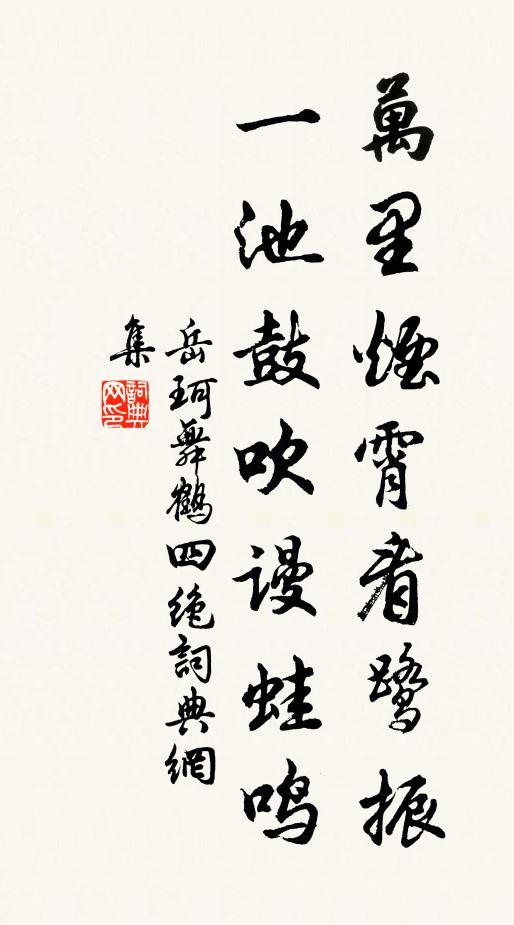 萬里煙霄看鷺振
一池鼓吹謾蛙鳴
岳珂舞鶴四絶詞典網
集
詞典網印